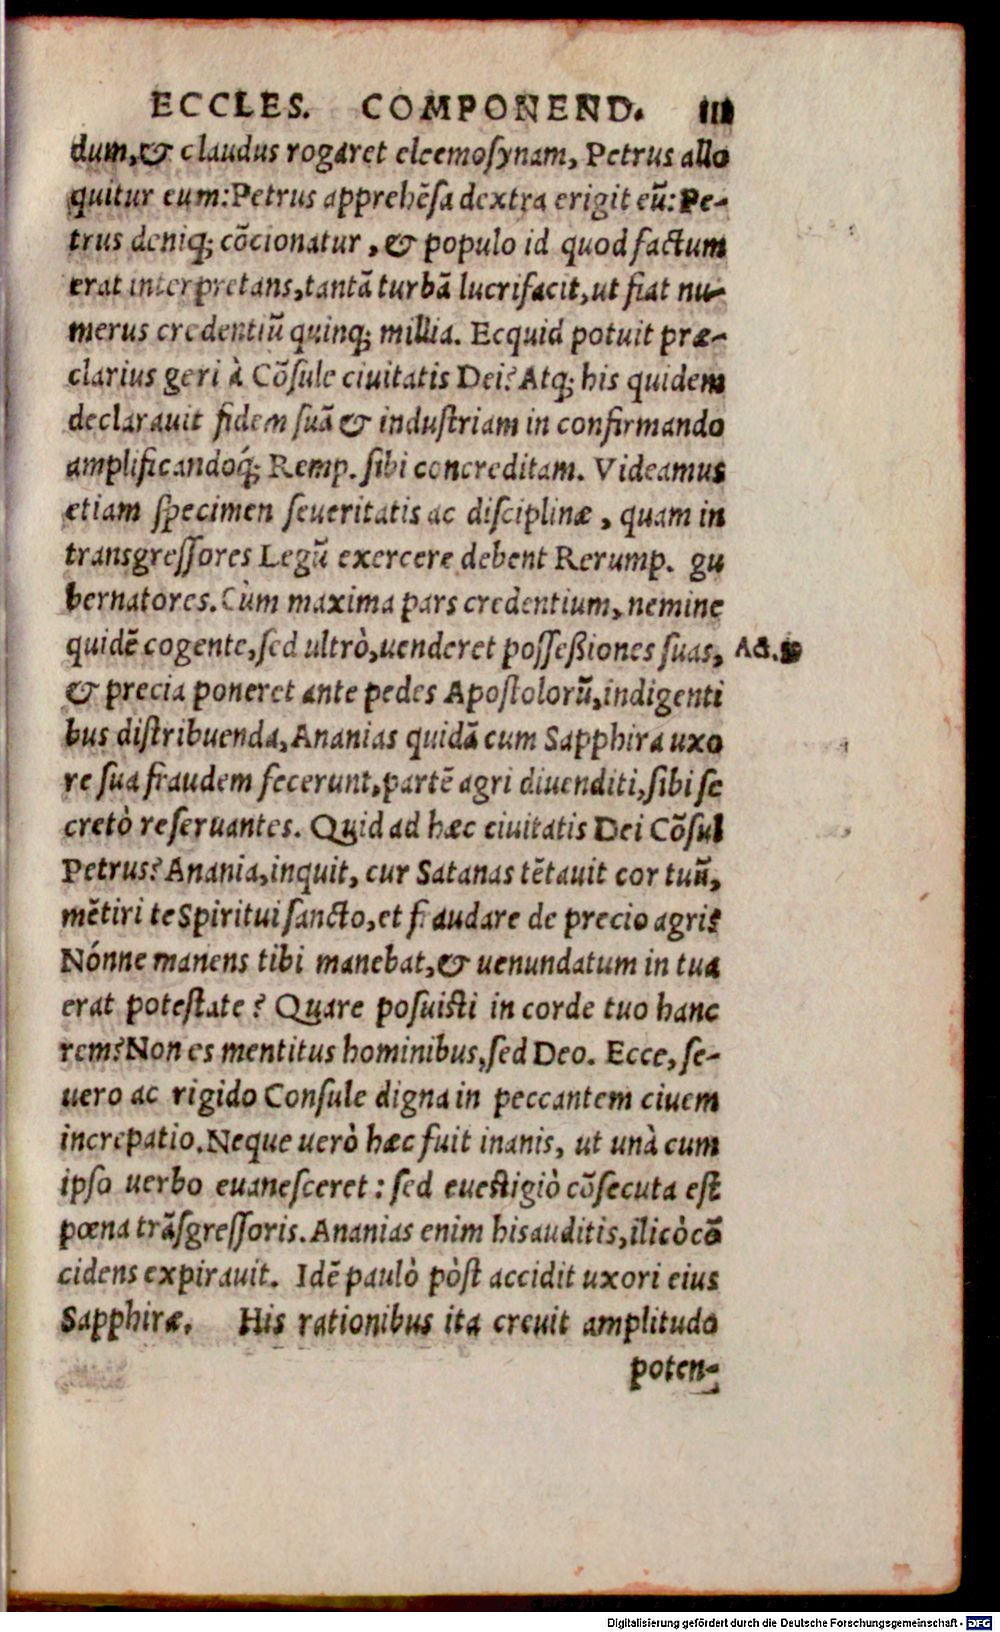 ECCLES. COMPONEND. 111
dum, & claudus rogaret eleemosynam, Petrus allo
quitur eum: Petrus apprehēsa dextra erigit eū: Pe-
trus deniq; cōcionatur, & populo id quod factum
erat interpretans, tantā turbā lucrifacit, ut fiat nu-
merus credentiū quinq; millia. Ecquid potuit præ-
clarius geri à Cōsule ciuitatis Dei? Atq; his quidem
declarauit fidem suā & industriam in confirmando
amplificandoq́; Remp. sibi concreditam. Videamus
etiam specimen seueritatis ac disciplinæ, quam in
transgressores Legū exercere debent Rerump. gu
bernatores. Cùm maxima pars credentium, nemine
quidē cogente, sed ultrò, uenderet possessiones suas, Act.
& precia poneret ante pedes Apostolorū, indigenti
bus distribuenda, Ananias quidā cum Sapphira uxo
re sua fraudem fecerunt, partē agri diuenditi, sibi se
cretò reseruantes. Quid ad hæc ciuitatis Dei Cōsul
Petrus? Anania, inquit, cur Satanas tētauit cor tuū,
mētiri te Spiritui sancto, et fraudare de precio agri?
Nónne manens tibi manebat, & uenundatum in tua
erat potestate? Quare posuisti in corde tuo hanc
rem? Non es mentitus hominibus, sed Deo. Ecce, se-
uero ac rigido Consule digna in peccantem ciuem
increpatio. Neque uerò hæc fuit inanis, ut unà cum
ipso uerbo euanesceret: sed euestigiò cōsecuta est
pœna trāsgressoris. Ananias enim his auditis, ilicò cō
cidens expirauit. Idē paulò pòst accidit uxori eius
Sapphiræ. His rationibus ita creuit amplitudo
poten-
Digitalisierung gefördert durch die Deutsche Forschungsgemeinschaft - DFG